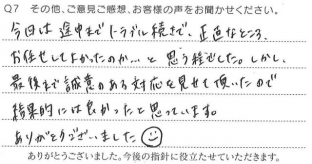 Q7 その他、ご意見ご感想、お客様の声をお聞かせください。
今回は途中までトラブル続きで、正直なところ、
お任せしてよかったのか…と思う程でした。しかし、
最後まで誠意のある対応を見せて頂いたので
結果的には良かったと思っています。
ありがとうございました
ありがとうございました。今後の指針に役立たせていただきます。